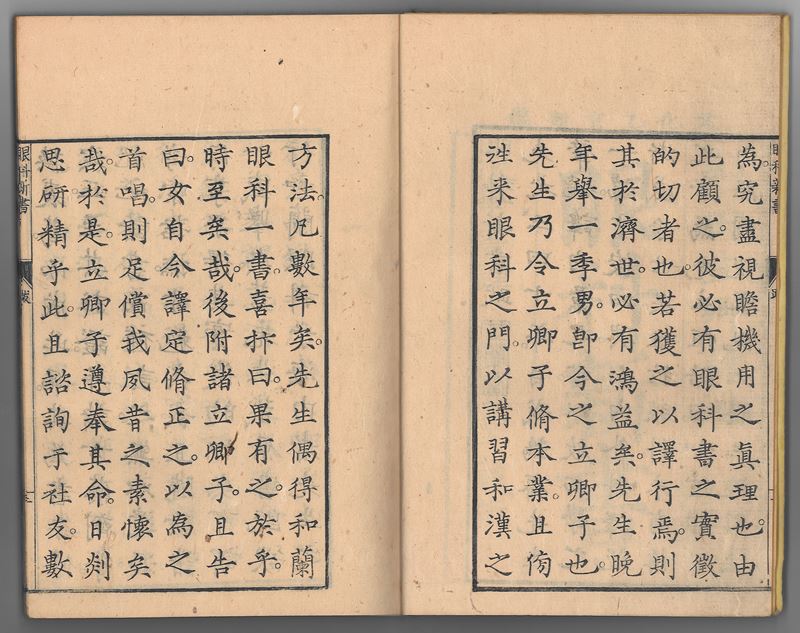 為。究盡視瞻機用之眞理也。由
此顧之。彼必有眼科書之實徵
的切者也。若獲之以譯行焉。則
其於濟世。必有鴻益矣。先生晚
年舉一季男。卽今之立卿子也。
先生乃令立卿子脩本業。且傍
往来眼科之門。以講習和漢之
方法。凡數年矣。先生偶得和蘭
眼科一書。喜抃曰。果有之於乎。
時至矣哉。後附諸立卿子。且告
曰。女自今譯定脩正之。以為之
首唱。則足償我夙昔之素懷矣
哉。於是。立卿子遵奉其命。日剡
思研精乎此。且諮詢于社友。數
眼科新書
跋